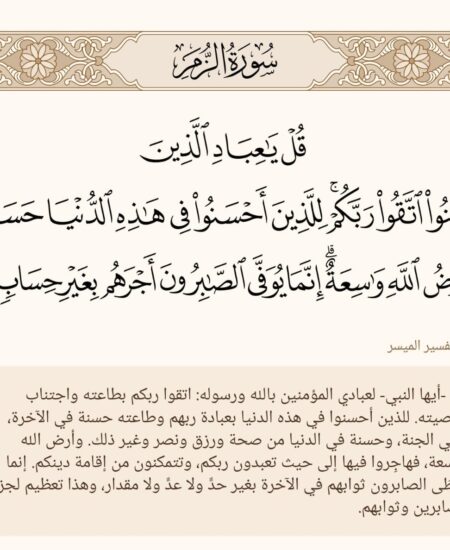 سُورَةُ الزُّمَرِ
قُلۡ يَٰعِبَادِ ٱلَّذِينَ
نُواْ ٱتَّقُواْ رَبَّكُمۡۚ لِلَّذِينَ أَحۡسَنُواْ فِي هَٰذِهِ ٱلدُّنۡيَا حَسَ
ضُ ٱللَّهِ وَٰسِعَةٌۗ إِنَّمَا يُوَفَّى ٱلصَّٰبِرُونَ أَجۡرَهُم بِغَيۡرِ حِسَابٖ
فسير الميسر
-أيها النبي- لعبادي المؤمنين بالله ورسوله: اتقوا ربكم بطاعته واجتناب
صيته. للذين أحسنوا في هذه الدنيا بعبادة ربهم وطاعته حسنة في الآخرة،
ي الجنة، وحسنة في الدنيا من صحة ورزق ونصر وغير ذلك. وأرض الله
سعة، فهاجِروا فيها إلى حيث تعبدون ربكم، وتتمكنون من إقامة دينكم. إنما
طَى الصابرون ثوابهم في الآخرة بغير حدّ ولا عدّ ولا مقدار، وهذا تعظيم لجز
صابرين وثوابهم.